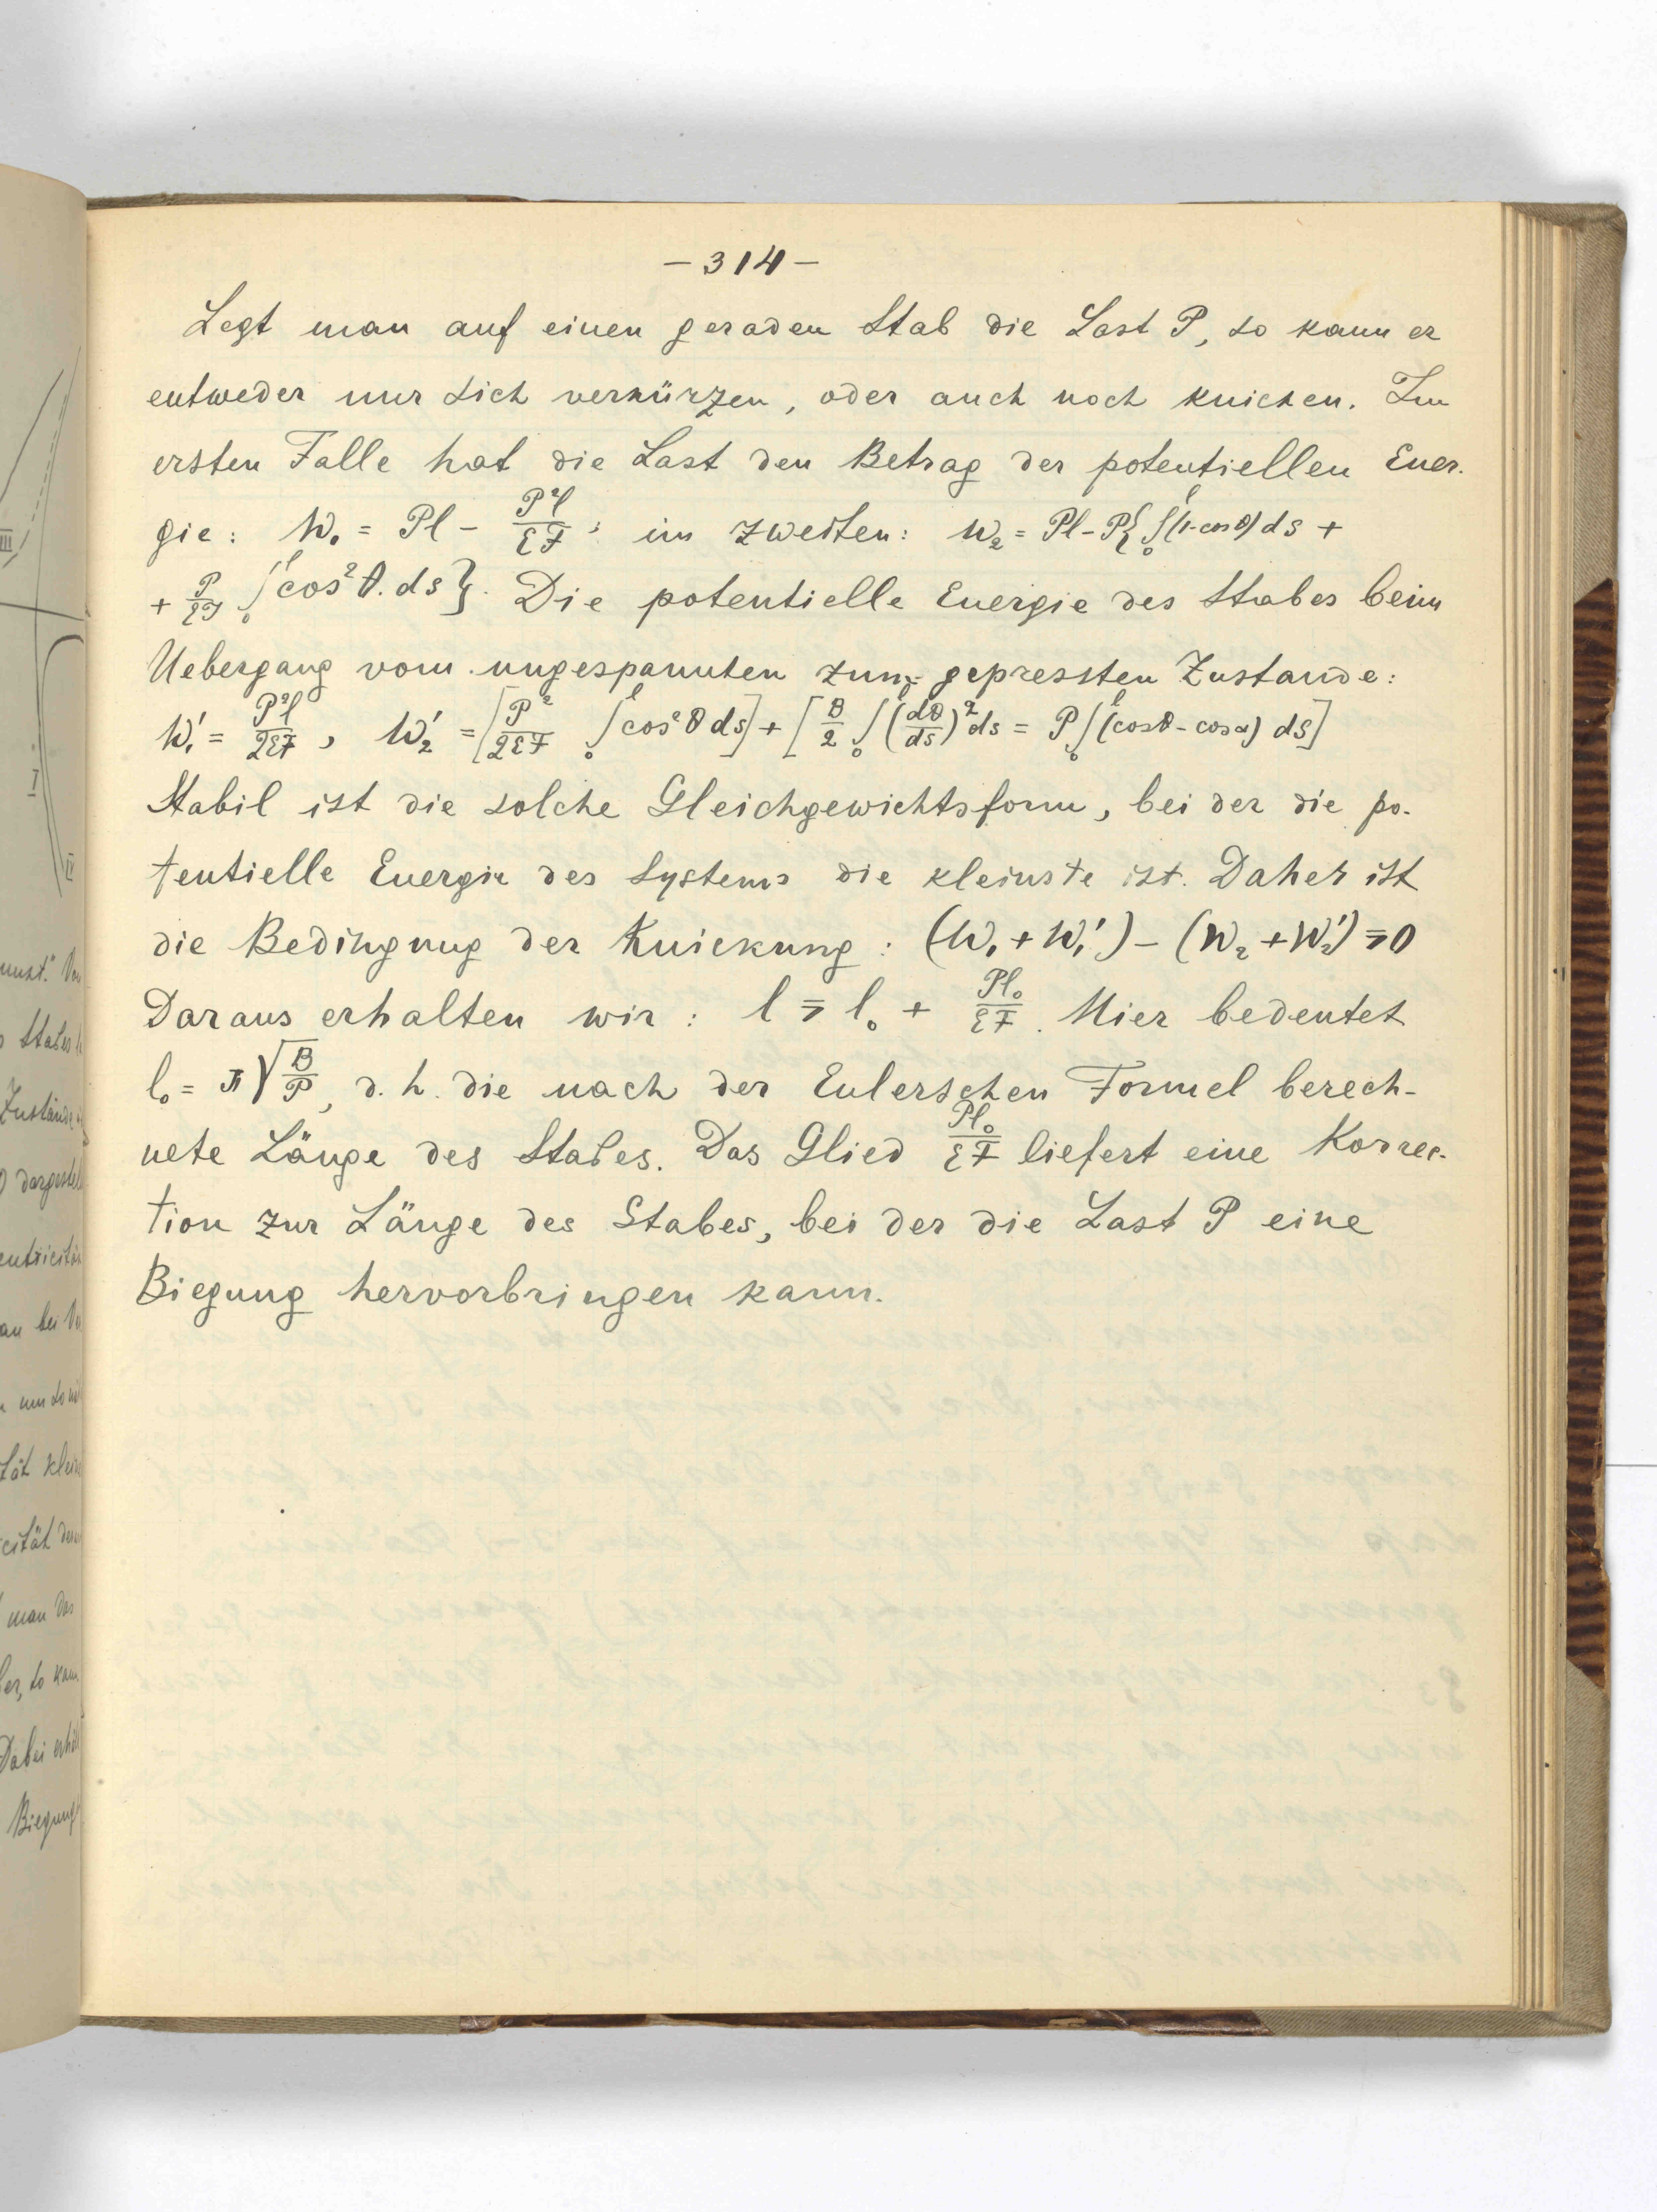 – 314 –
Legt man auf einen geraden Stab die Last P, so kann er
entweder nur sich verkürzen, oder auch noch knicken. Im
ersten Falle hat die Last den Betrag der potentiellen Ener-
gie: W₁ = Pl - P²l/εF; im zweiten: W₂ = Pl - P{∫₀ˡ(1-cosθ)ds +
+ P/εF ∫₀ˡcos²θ.ds}. Die potentielle Energie des Stabes beim
Uebergang vom ungespannten zum gepressten Zustande:
W₁' = P²l/2εF, W₂' = [P²/2εF ∫₀ˡcos²θ ds] + [B/2 ∫₀ˡ(dθ/ds)²ds = P∫₀ˡ(cosθ - cosα) ds]
Stabil ist die solche Gleichgewichtsform, bei der die po-
tentielle Energie des Systems die kleinste ist. Daher ist
die Bedingung der Knickung: (W₁ + W₁') - (W₂ + W₂') ⩾ 0
Daraus erhalten wir: l ⩾ l₀ + Pl₀/εF. Hier bedeutet
l₀ = π√B/P, d.h. die nach der Eulerschen Formel berech-
nete Länge des Stabes. Das Glied Pl₀/εF liefert eine Korrec-
tion zur Länge des Stabes, bei der die Last P eine
Biegung hervorbringen kann.
III
I
IV
Stabes
Zustände
dargestel
an bei
tät klein
cität
man das
er, so kam
Dabei
Biegung